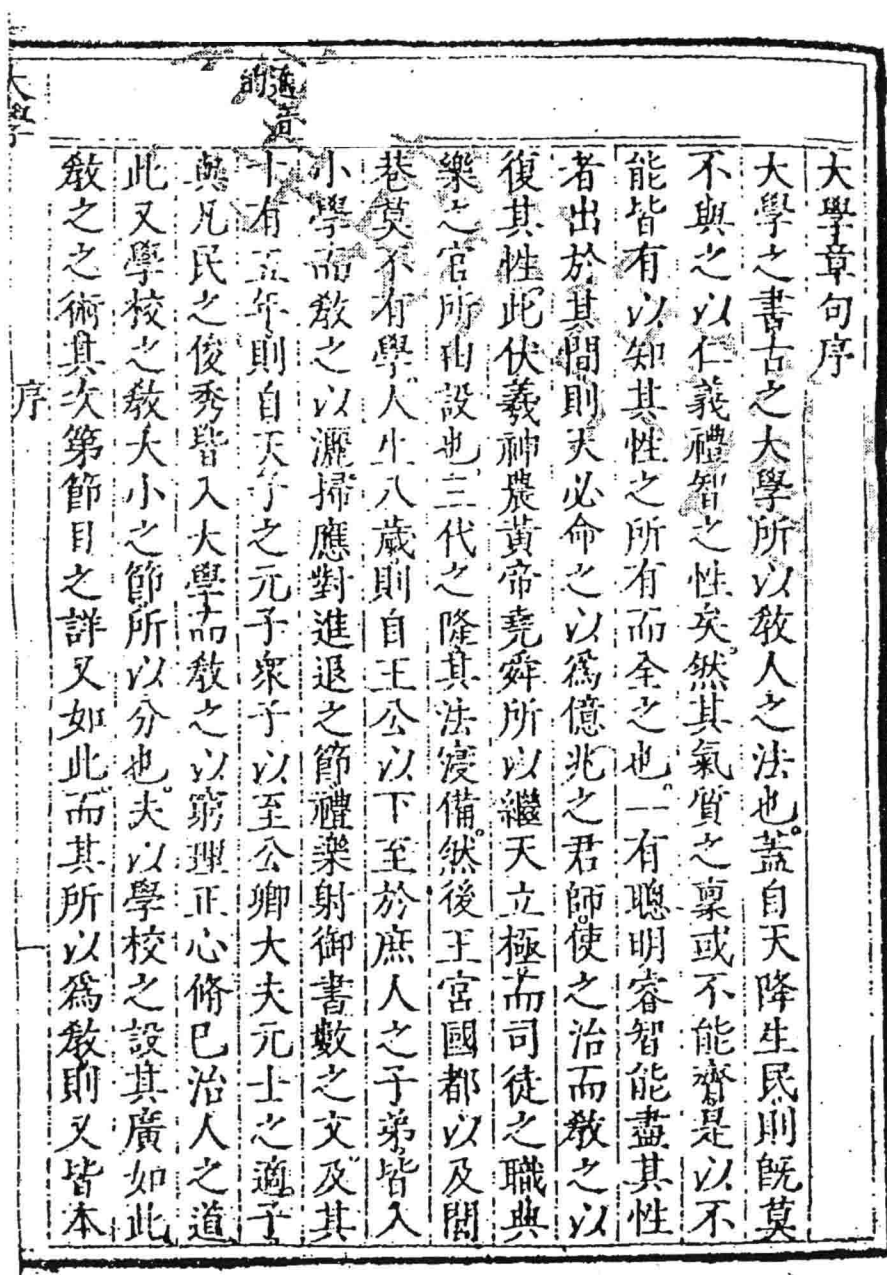 大學章句序
大學之書古之大學所以敎人之法也。蓋自天降生民則旣莫
不與之以仁義禮智之性矣。然其氣質之禀或不能齊是以不
能皆有以知其性之所有而全之也。一有聰明睿智能盡其性
者出於其閒則天必命之以爲億兆之君師。使之治而敎之以
復其性。此伏羲神農黃帝堯舜所以繼天立極而司徒之職典
樂之官所由設也。三代之隆其法寖備。然後王宮國都以及閭
巷莫不有學。人生八歲則自王公以下至於庶人之子弟。皆入
小學而敎之以灑掃應對進退之節禮樂射御書數之文及其
十有五年則自天子之元子衆子以至公卿大夫元士之適子
與凡民之俊秀皆入大學而敎之以窮理正心脩已治人之道
此又學校之敎大小之節所以分也。夫以學校之設其廣如此
敎之之術其次第節目之詳又如此而其所以爲敎則又皆本
適音
的
大學
序
一